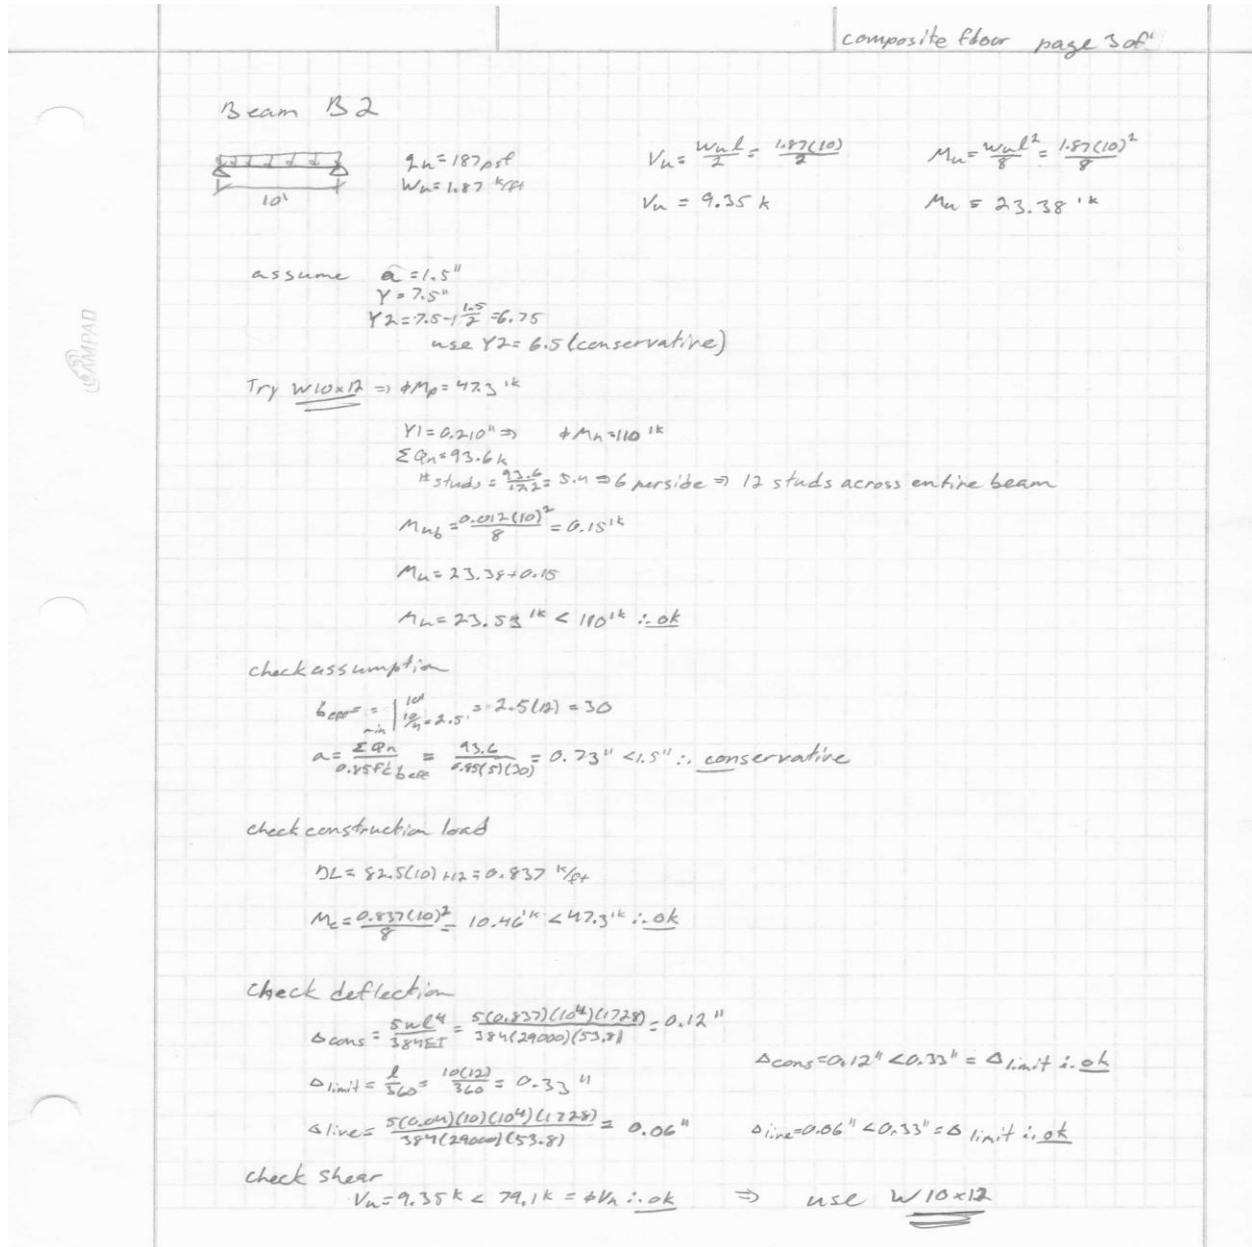 composite floor page 3 of
Beam B2
10'
qu = 187 psf
Wu = 1.87 k/ft
Vu = Wu l / 2 = 1.87(10) / 2
Vu = 9.35 k
Mu = wu l² / 8 = 1.87(10)² / 8
Mu = 23.38 'k
assume a = 1.5"
Y = 7.5"
Y2 = 7.5 - 1.5/2 = 6.75
use Y2 = 6.5 (conservative)
CAMPAD
Try W10x12 => φMp = 47.3 'k
Y1 = 0.210" => φMn = 110 'k
ΣQn = 93.6 k
# studs = 93.6/17.2 = 5.4 => 6 per side => 12 studs across entire beam
Mub = 0.012(10)² / 8 = 0.15 'k
Mu = 23.38 + 0.15
Mu = 23.53 'k < 110 'k ∴ ok
check assumption
beff = min | 10' 10/4 = 2.5' = 2.5(12) = 30
a = ΣQn / 0.85f'c beff = 93.6 / 0.85(5)(30) = 0.73" < 1.5" ∴ conservative
check construction load
DL = 82.5(10) + 12 = 0.837 k/ft
Mc = 0.837(10)² / 8 = 10.46 'k < 47.3 'k ∴ ok
check deflection
Δcons = 5wl⁴ / 384EI = 5(0.837)(10⁴)(1728) / 384(29000)(53.8) = 0.12"
Δcons = 0.12" < 0.33" = Δlimit ∴ ok
Δlimit = l/360 = 10(12)/360 = 0.33"
Δlive = 5(0.04)(10)(10⁴)(1728) / 384(29000)(53.8) = 0.06"
Δlive = 0.06" < 0.33" = Δlimit ∴ ok
check shear
Vu = 9.35 k < 79.1 k = φVn ∴ ok => use W10x12